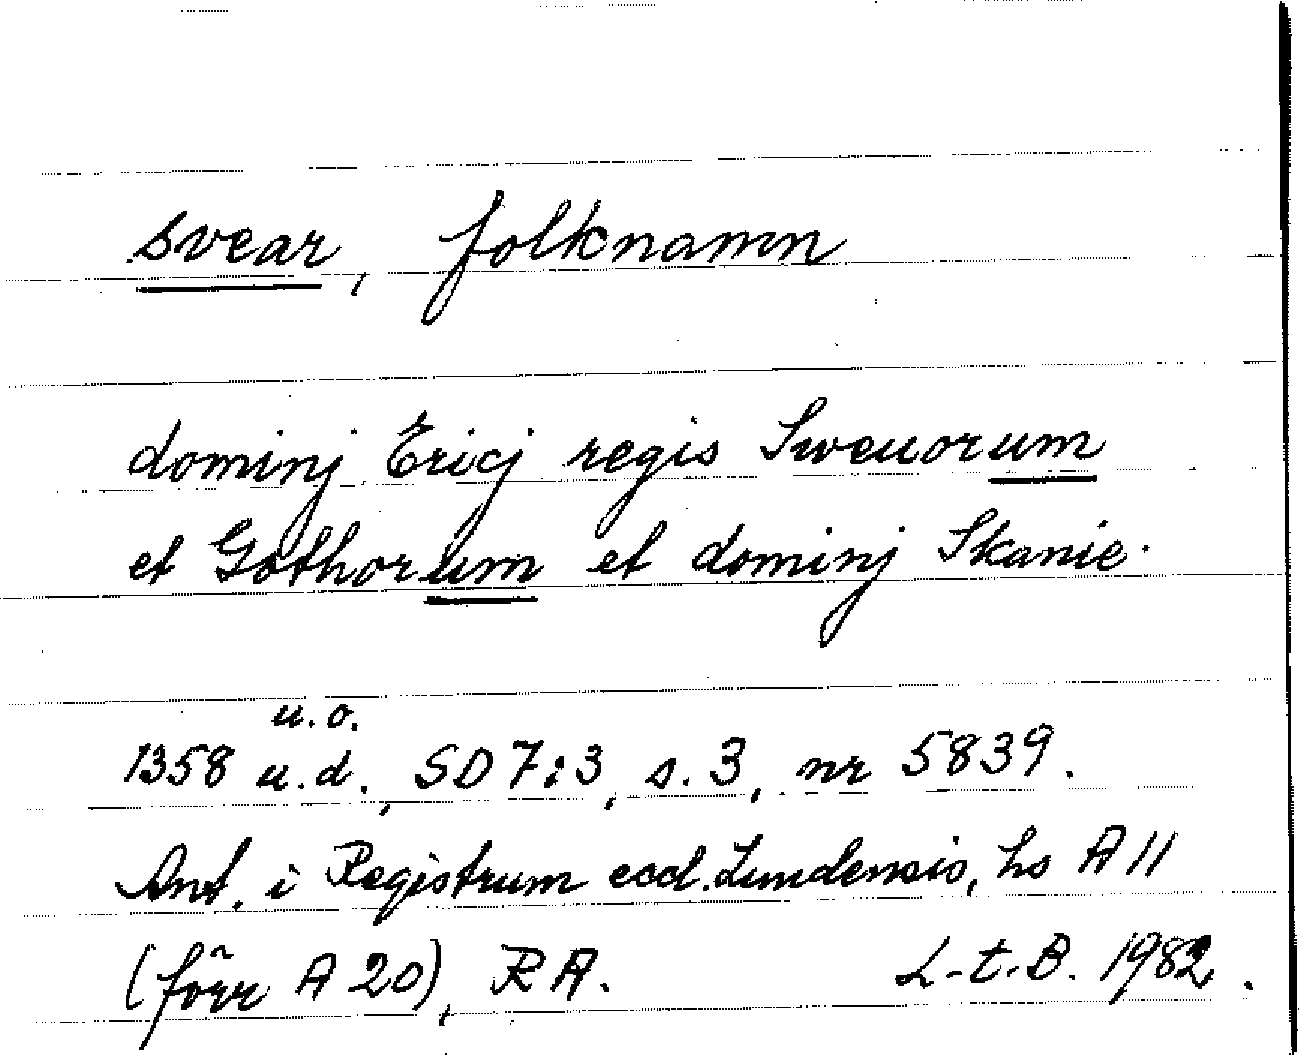 svear, folknamn
dominj Ericj regis Sweuorum
et Gothorum et dominj Skanie.
u.o.
1358 u.d., SD 7:3, s. 3, nr 5839.
Ant. i Registrum eccl. Lundensis, hs A 11
(förr A 20), RA. L-t.B. 1982.